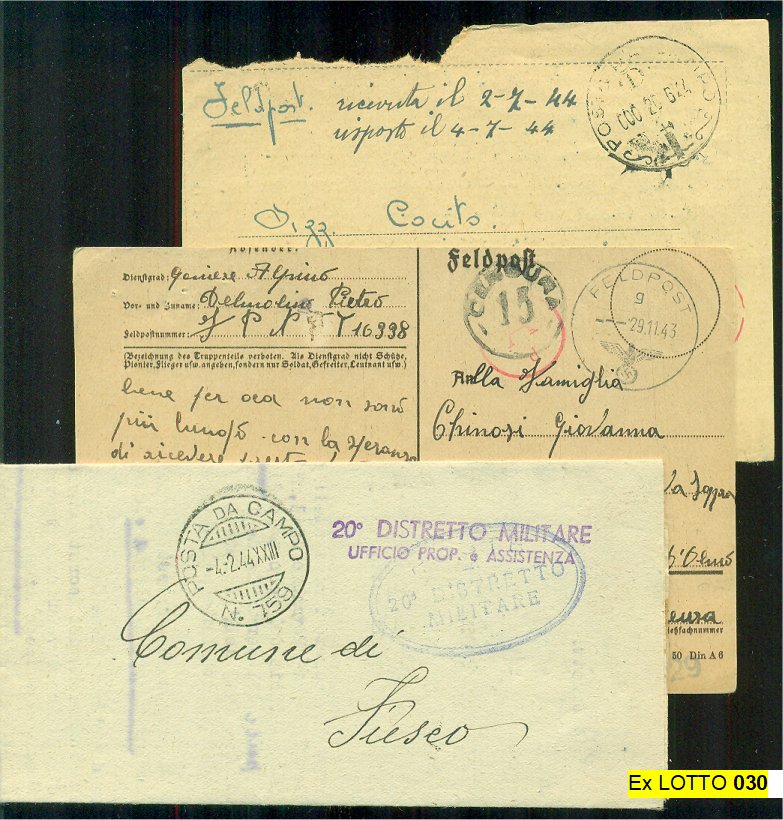 Feldpost. ricevuta il 2-7-44
risposto il 4-7-44
Cocito.
Absender:
Dienstgrad: Alpino
Vor- und Zuname: Delmolino Pietro
Feldpostnummer: 16998
(Bezeichnung des Truppenteils verboten. Als Dienstgrad nicht Schütze,
Pionier, Flieger usw. angeben, sondern nur Soldat, Gefreiter, Leutnant usw.)
bene per ora non sono
più lungo con la speranza
di ricevere
Feldpost
CENSURA
15
FELDPOST
g
-29.11.43
Alla Famiglia
Chinosi Giovanna
50 Din A 6
29
POSTA DA CAMPO
-4.2.44 XXII
N. 759
20° DISTRETTO MILITARE
UFFICIO PROP. e ASSISTENZA
20° DISTRETTO
MILITARE
Comune di
Fiesco
Ex LOTTO 030